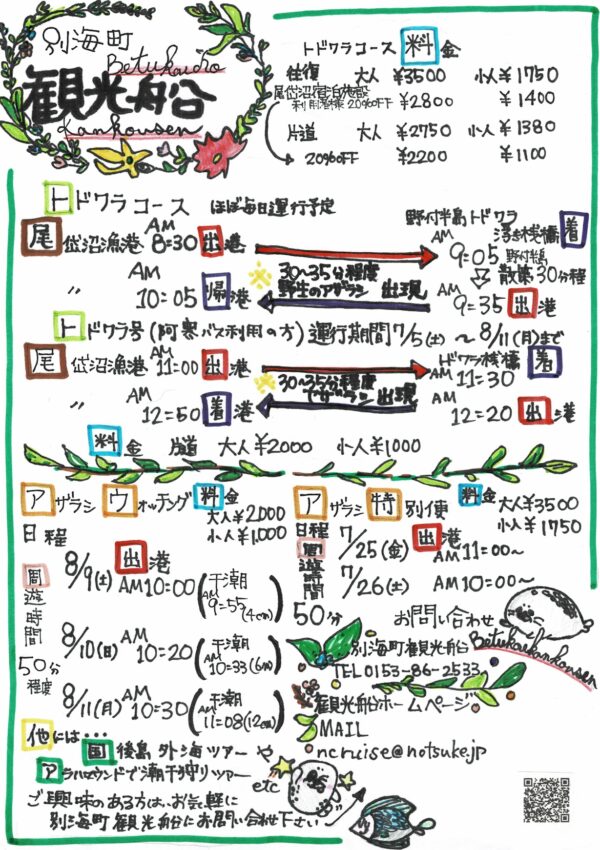 別海町
Betukaicho
観光船
Kankousen
トドワラコース 料金
往復 大人 ¥3500 小人¥1750
尾岱沼宿泊施設
利用客様 20%OFF ¥2800 ¥1400
片道 大人 ¥2750 小人¥1380
20%OFF ¥2200 ¥1100
トドワラコース ほぼ毎日運行予定
尾岱沼漁港 AM 8:30 出港
野付半島トドワラ
浮き桟橋 着
AM 9:05 野付半島
散策30分程
※30~35分程度
野生のアザラシ 出現
〃 AM 10:05 帰港
AM 9:35 出港
トドワラ号(阿寒バス利用の方)運行期間7/5(土) ~8/11(月)まで
尾岱沼漁港 AM 11:00 出港
トドワラ桟橋 着
AM 11:30
※30~35分程度
でアザラシ 出現
〃 AM 12:50 着港
AM 12:20 出港
料金 片道 大人¥2000 小人¥1000
アザラシ ウォッチング 料金
大人¥2,000
小人¥1,000
日程
出港
周遊時間
50分程度
8/9(土) AM10:00 (干潮 AM 9:55(4cm))
8/10(日) AM 10:20 (干潮 AM 10:33(6cm))
8/11(月) AM 10:30 (干潮 AM 11:08(12cm))
アザラシ 特別便 料金
大人¥3500
小人¥1750
日程
周遊時間
50分
7/25(金) 出港 AM11:00~
7/26(土) AM10:00~
お問い合わせ
別海町観光船
Betukaikankousen
TEL0153-86-2533
観光船ホームページ
MAIL
ncruise@notsuke.jp
他には…
国後島 外海ツアー や
アラハマワンドで潮干狩りツアー
etc
ご興味のある方は、お気軽に
別海町観光船にお問い合わせ下さい